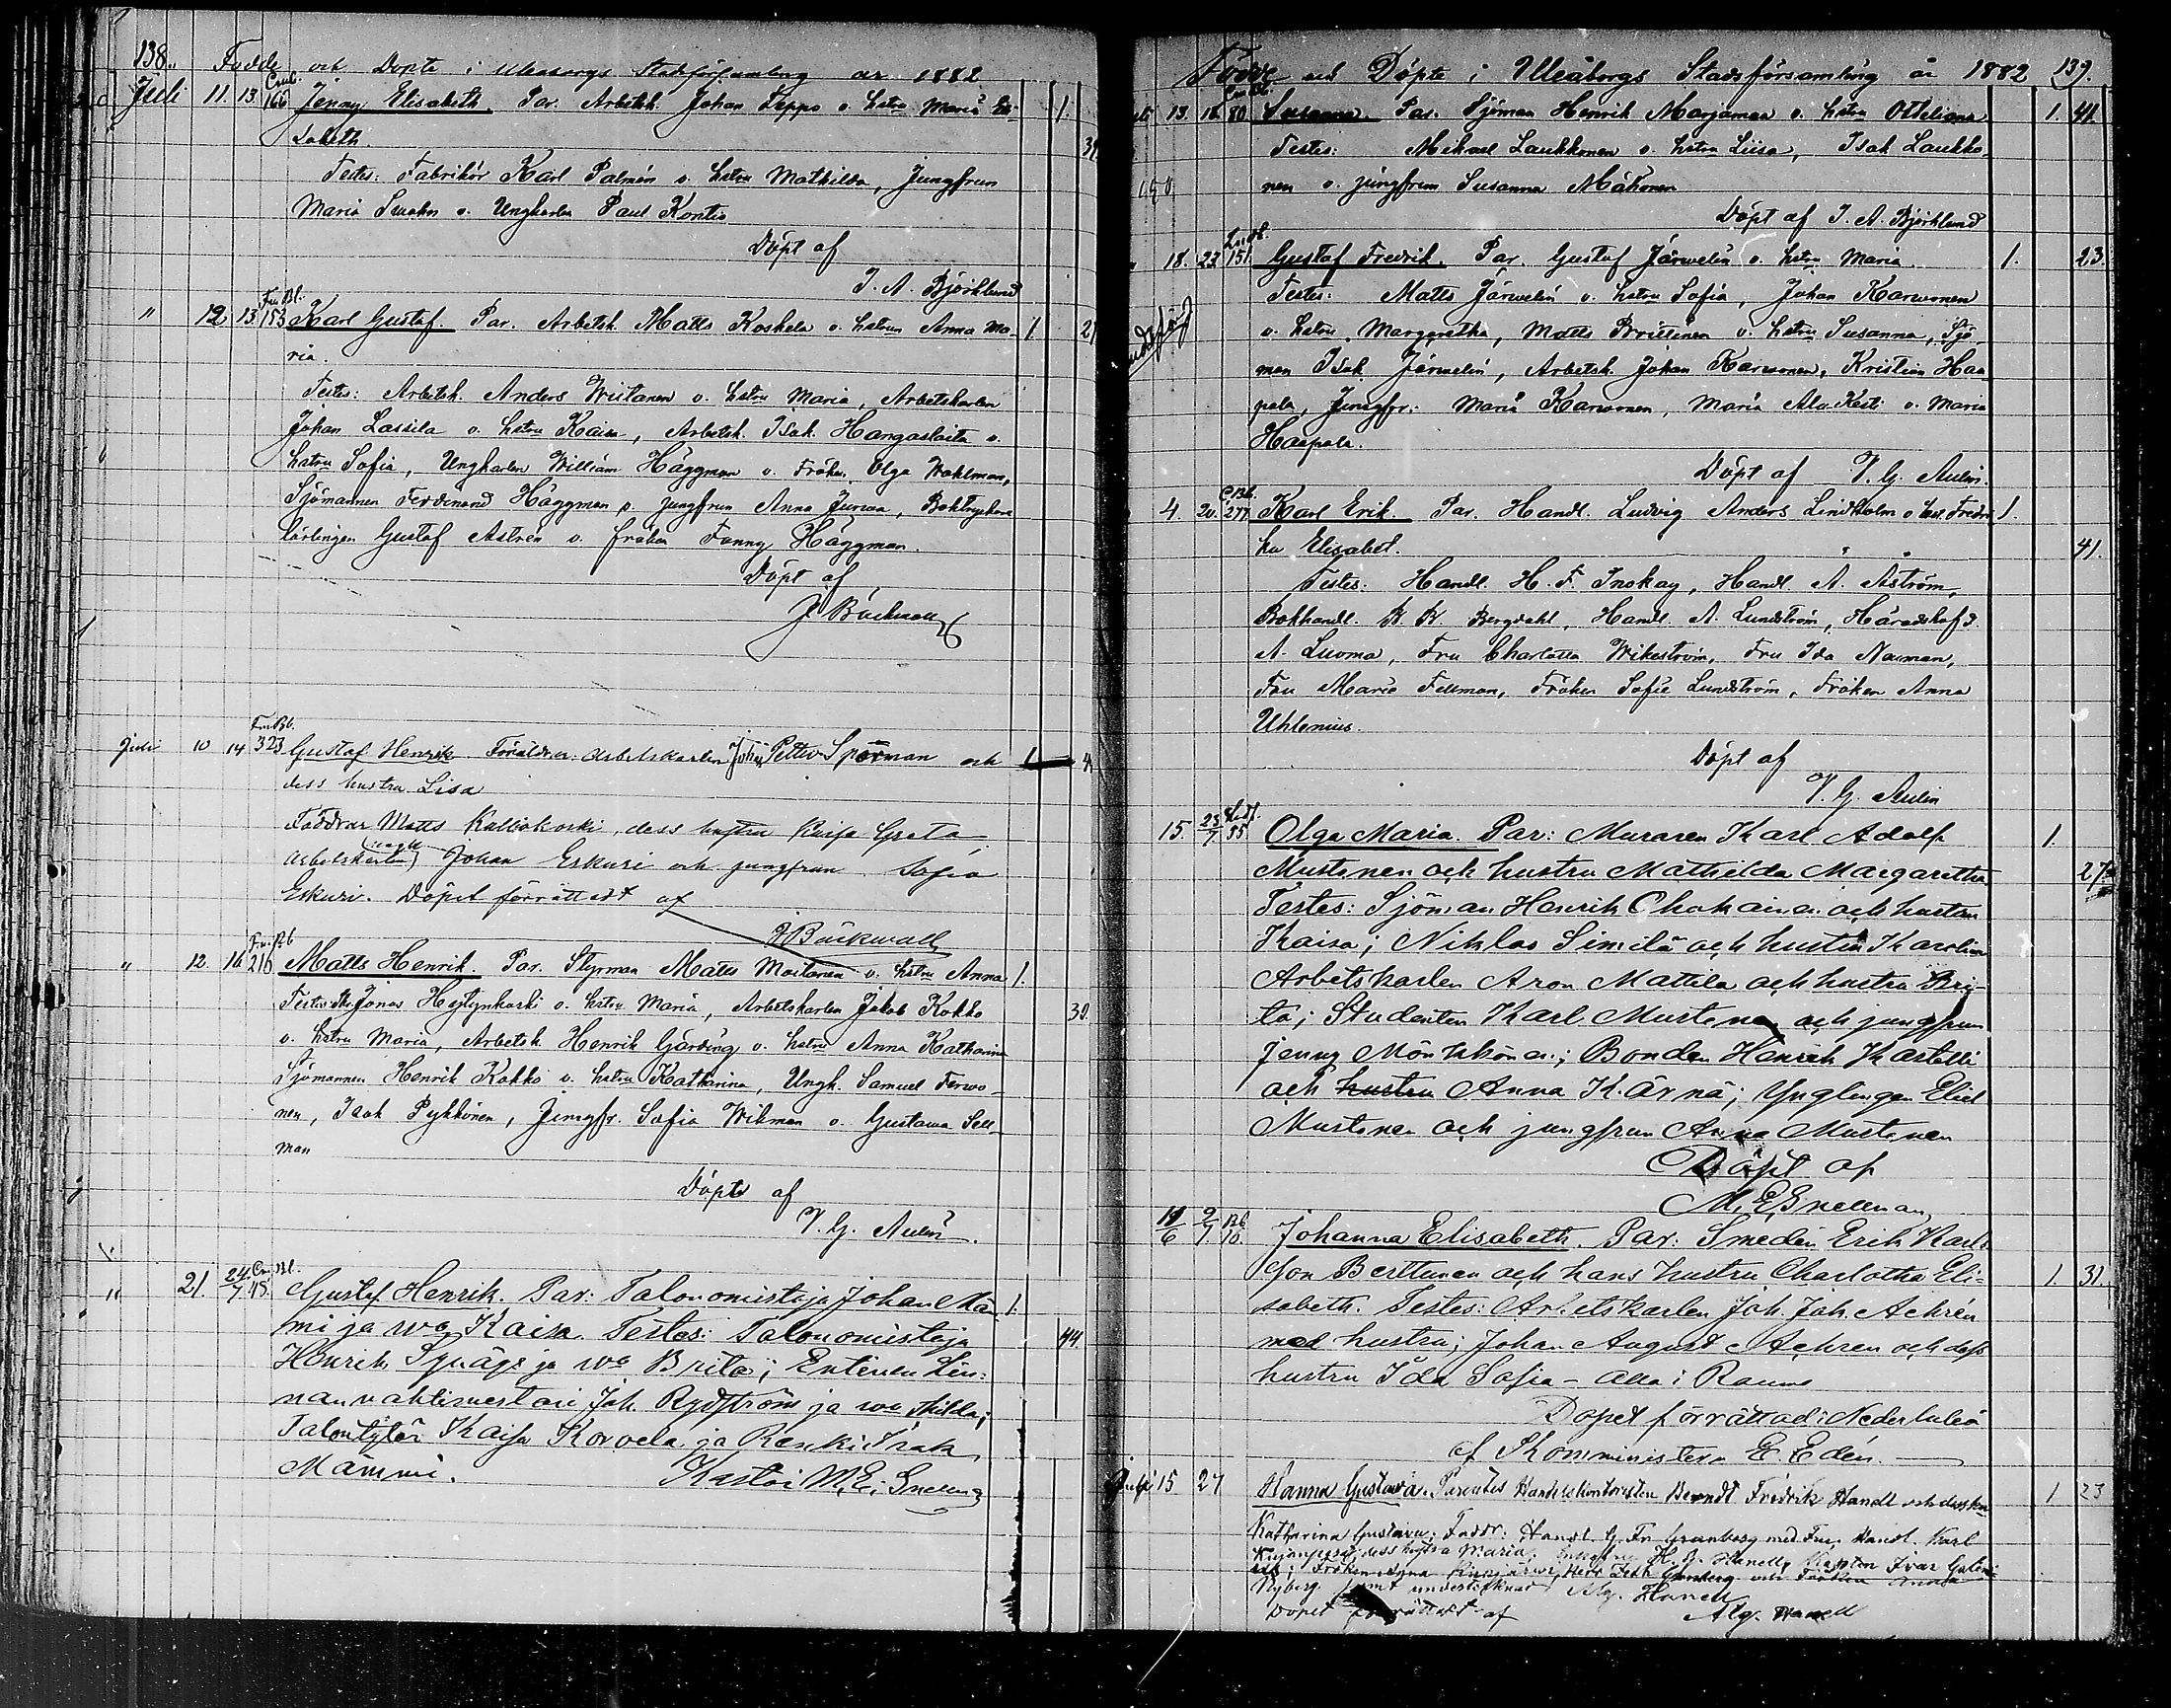 138.
Födde och Döpte i Uleåborgs Stadsförsamling år 1882
Juli 11. 13. 166 Jenny Elisabeth. Par. Arbetsk. Johan Leppo o. hstru Maria Eli- 1.
sabeth.
Testes: Fabrikör Karl Palmén o. hstru Mathilda, Jungfrun
Maria o. Ungkarlen Paul Kontio
Döpt af
J. A. Björklund
" 12 13 153 Karl Gustaf. Par. Arbetsk. Matts Koskela o. hstrun Anna Ma- 1. 21
ria.
Testes: Arbetsk. Anders Wiitanen o. hstru Maria, Arbetskarlen
Johan Lassila o. hstru Kaisa, Arbetsk. Isak Hangaslaita o.
hstru Sofia, Ungkarlen William Häggman o. Fröken Olga Wahlman,
Sjömannen Ferdinand Häggman o. jungfrun Anna Jurva, Boktryckare
lärlingen Gustaf Astrén o. fröken Fanny Häggman.
Döpt af
J. Bäckwall
Juli 10 14 323 Gustaf Henrik Föräldrar arbetskarlen Johan Petter Sporman och 1
dess hustru Lisa
Faddrar Matts Kalliokoski, dess hustru Kaisa Greta
arbetskarlen Johan Eskuri och jungfrun Sofia
Eskuri. Döpet förrättadt af
J Bäckwall
" 12. 16 216 Matts Henrik. Par. Styrman Matts Moilanen o. hstru Anna 1.
Testes: Jonas Hejtynkoski o. hstru Maria, Arbetskarlen Jakob Kokko 30.
o. hstru Maria, Arbetsk Henrik Gärding o. hstru Anna Katharina
Sjömannen Henrik Kokko o. hstru Katharina, Ungk. Samuel Terwo-
nen, Isak Pykkönen, Jungfr. Sofia Wikman o. Gustava Sell-
man
Döpte af
V. G. Aulin.
" 21. 24/7 45. Gustaf Henrik. Par: Talonomistaja Johan Mäm 1.
mi ja wo Kaisa. Testes: Talonomistaja 44.
Henrik ja wo Brita; Entinen Lin-
nanvahtimestari Joh. Rydström ja wo Hilda;
Talontytär Kaisa Korvela ja Renki Isak
Mämmi. Kastoi M. E. Snellman

Födde och Döpte i Uleåborgs Stadsförsamling år 1882 139.
13. 18. 80 Susanna. Par. Sjöman Henrik Marjamaa o. hstru Ottiliana 1. 41.
Testes: Mikael Laukkonen o. hstru Liisa, Isak Laukko-
nen o. jungfrun Susanna Mähönen
Döpt af J. A. Björklund
18. 23 151 Gustaf Fredrik. Par. Gustaf Järwelin o. hstru Maria. 1. 23
Testes: Matts Järwelin o. hstru Sofia, Johan Karwonen
o. hstru Margaretha, Matts o. hstru Susanna, Sjö-
man Isak Järwelin, Arbetsk. Johan Karwonen, Kristian Haa-
pala, Jungfr. Maria Karwonen, Maria Ala-Kesti o. Maria
Haapala.
Döpt af V. G. Aulin.
4. 20. 277 Karl Erik. Par. Handl. Ludvig Anders Lindholm o. hust. Fredri 1.
ka Elisabet. 41.
Testes: Handl. H. F. Snokay, Handl. A. Aström,
Bokhandl. K. K. Bergdahl, Handl. A. Lundström, Häradshöfd.
A. Luoma, Fru Charlotta Wikström, Fru Ida Nauman,
Fru Maria Fellman, Fröken Sofie Lundström, Fröken Anna
Uhlenius.
Döpt af
V. G. Aulin
15. 23/7. 55 Olga Maria. Par: Muraren Karl Adolf 1.
Mustonen och hustru Mathilda Margaretha 27.
Testes: Sjöman Henrik Ohukainen och hustru
Kaisa; Niklas Similä och hustru Karolina
Arbetskarlen Aron Mattila och hustru Bri-
ta; Studenten Karl Mustonen och jungfrun
Jenny Mönkkönen; Bonden Henrik Kastelli
och hustru Anna Kärnä; Ynglingen Eliel
Mustonen och jungfrun Anna Mustonen
Döpt af
M. E. Snellman
11/6 2/7. 10. Johanna Elisabeth. Par: Smeden Erik Karls
son Berttunen och hans hustru Charlotta Eli- 1. 31.
sabeth. Testes: Arbetskarlen Joh. Joh. Achrén
med hustru; Johan August Achren och dess
hustru Ida Sofia – alla i
Dopet förrättad i Nederluleå
af Komminister E. Edén.
15 27 Hanna Gustava. Parentes Handelskontoristen Berndt Fredrik Hanell och dess hu 1 23
Katharina Gustava; Faddr: Handl. G. Fr. Granberg med Fru, Handl. Karl
dess hustru Maria; H. B. Hanell, Kapten Ivar
Fröken Herr Granberg och Fröken Anna
Nyberg samt undertecknad Alg. Hanell
Dopet förrättadt af Alg. Hanell